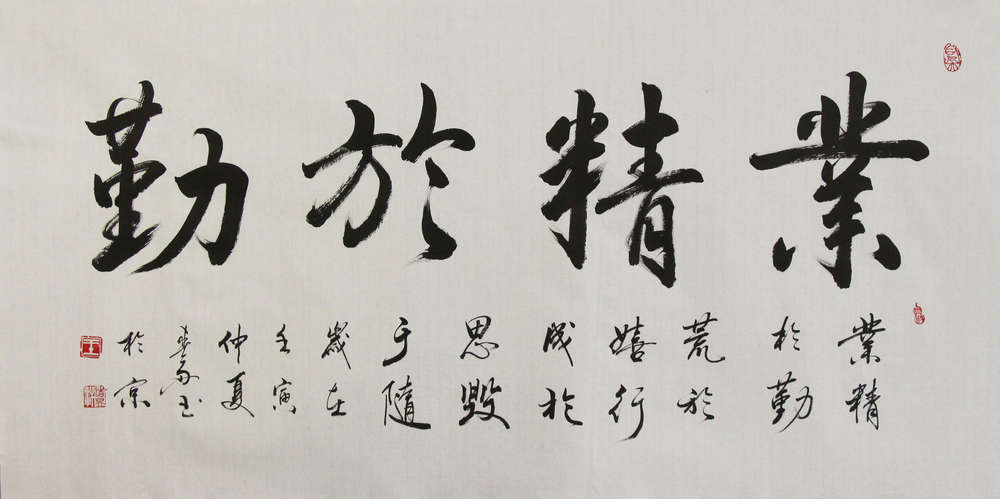 業精於勤
業精
於勤
荒於
嬉行
成於
思毀
于隨
歲在
壬寅
仲夏
書
於京